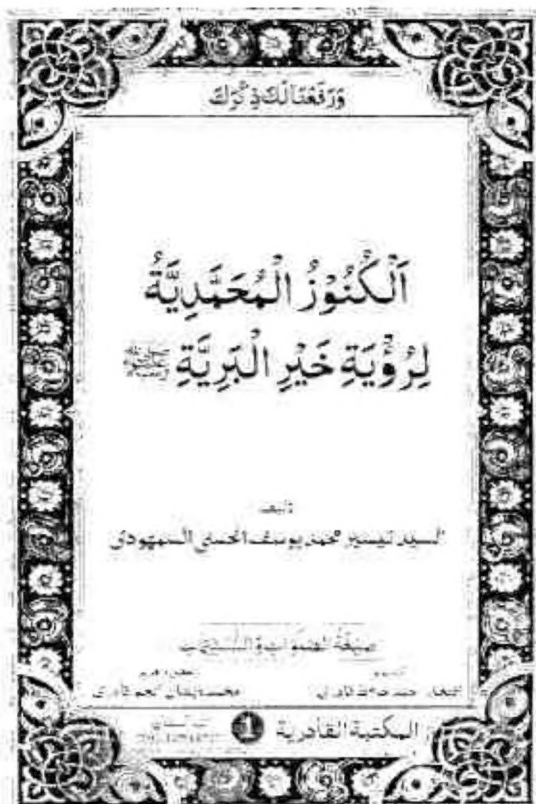 وَرَفَعْنَا لَكَ ذِكْرَكَ
اَلْكُنُوْزُ الْمُحَمَّدِيَّةُ
لِرُؤْيَةِ خَيْرِ الْبَرِيَّةِ ﷺ
تأليف
السيد تيسير محمد يوسف الحسني السمهودي
المكتبة القادرية 1